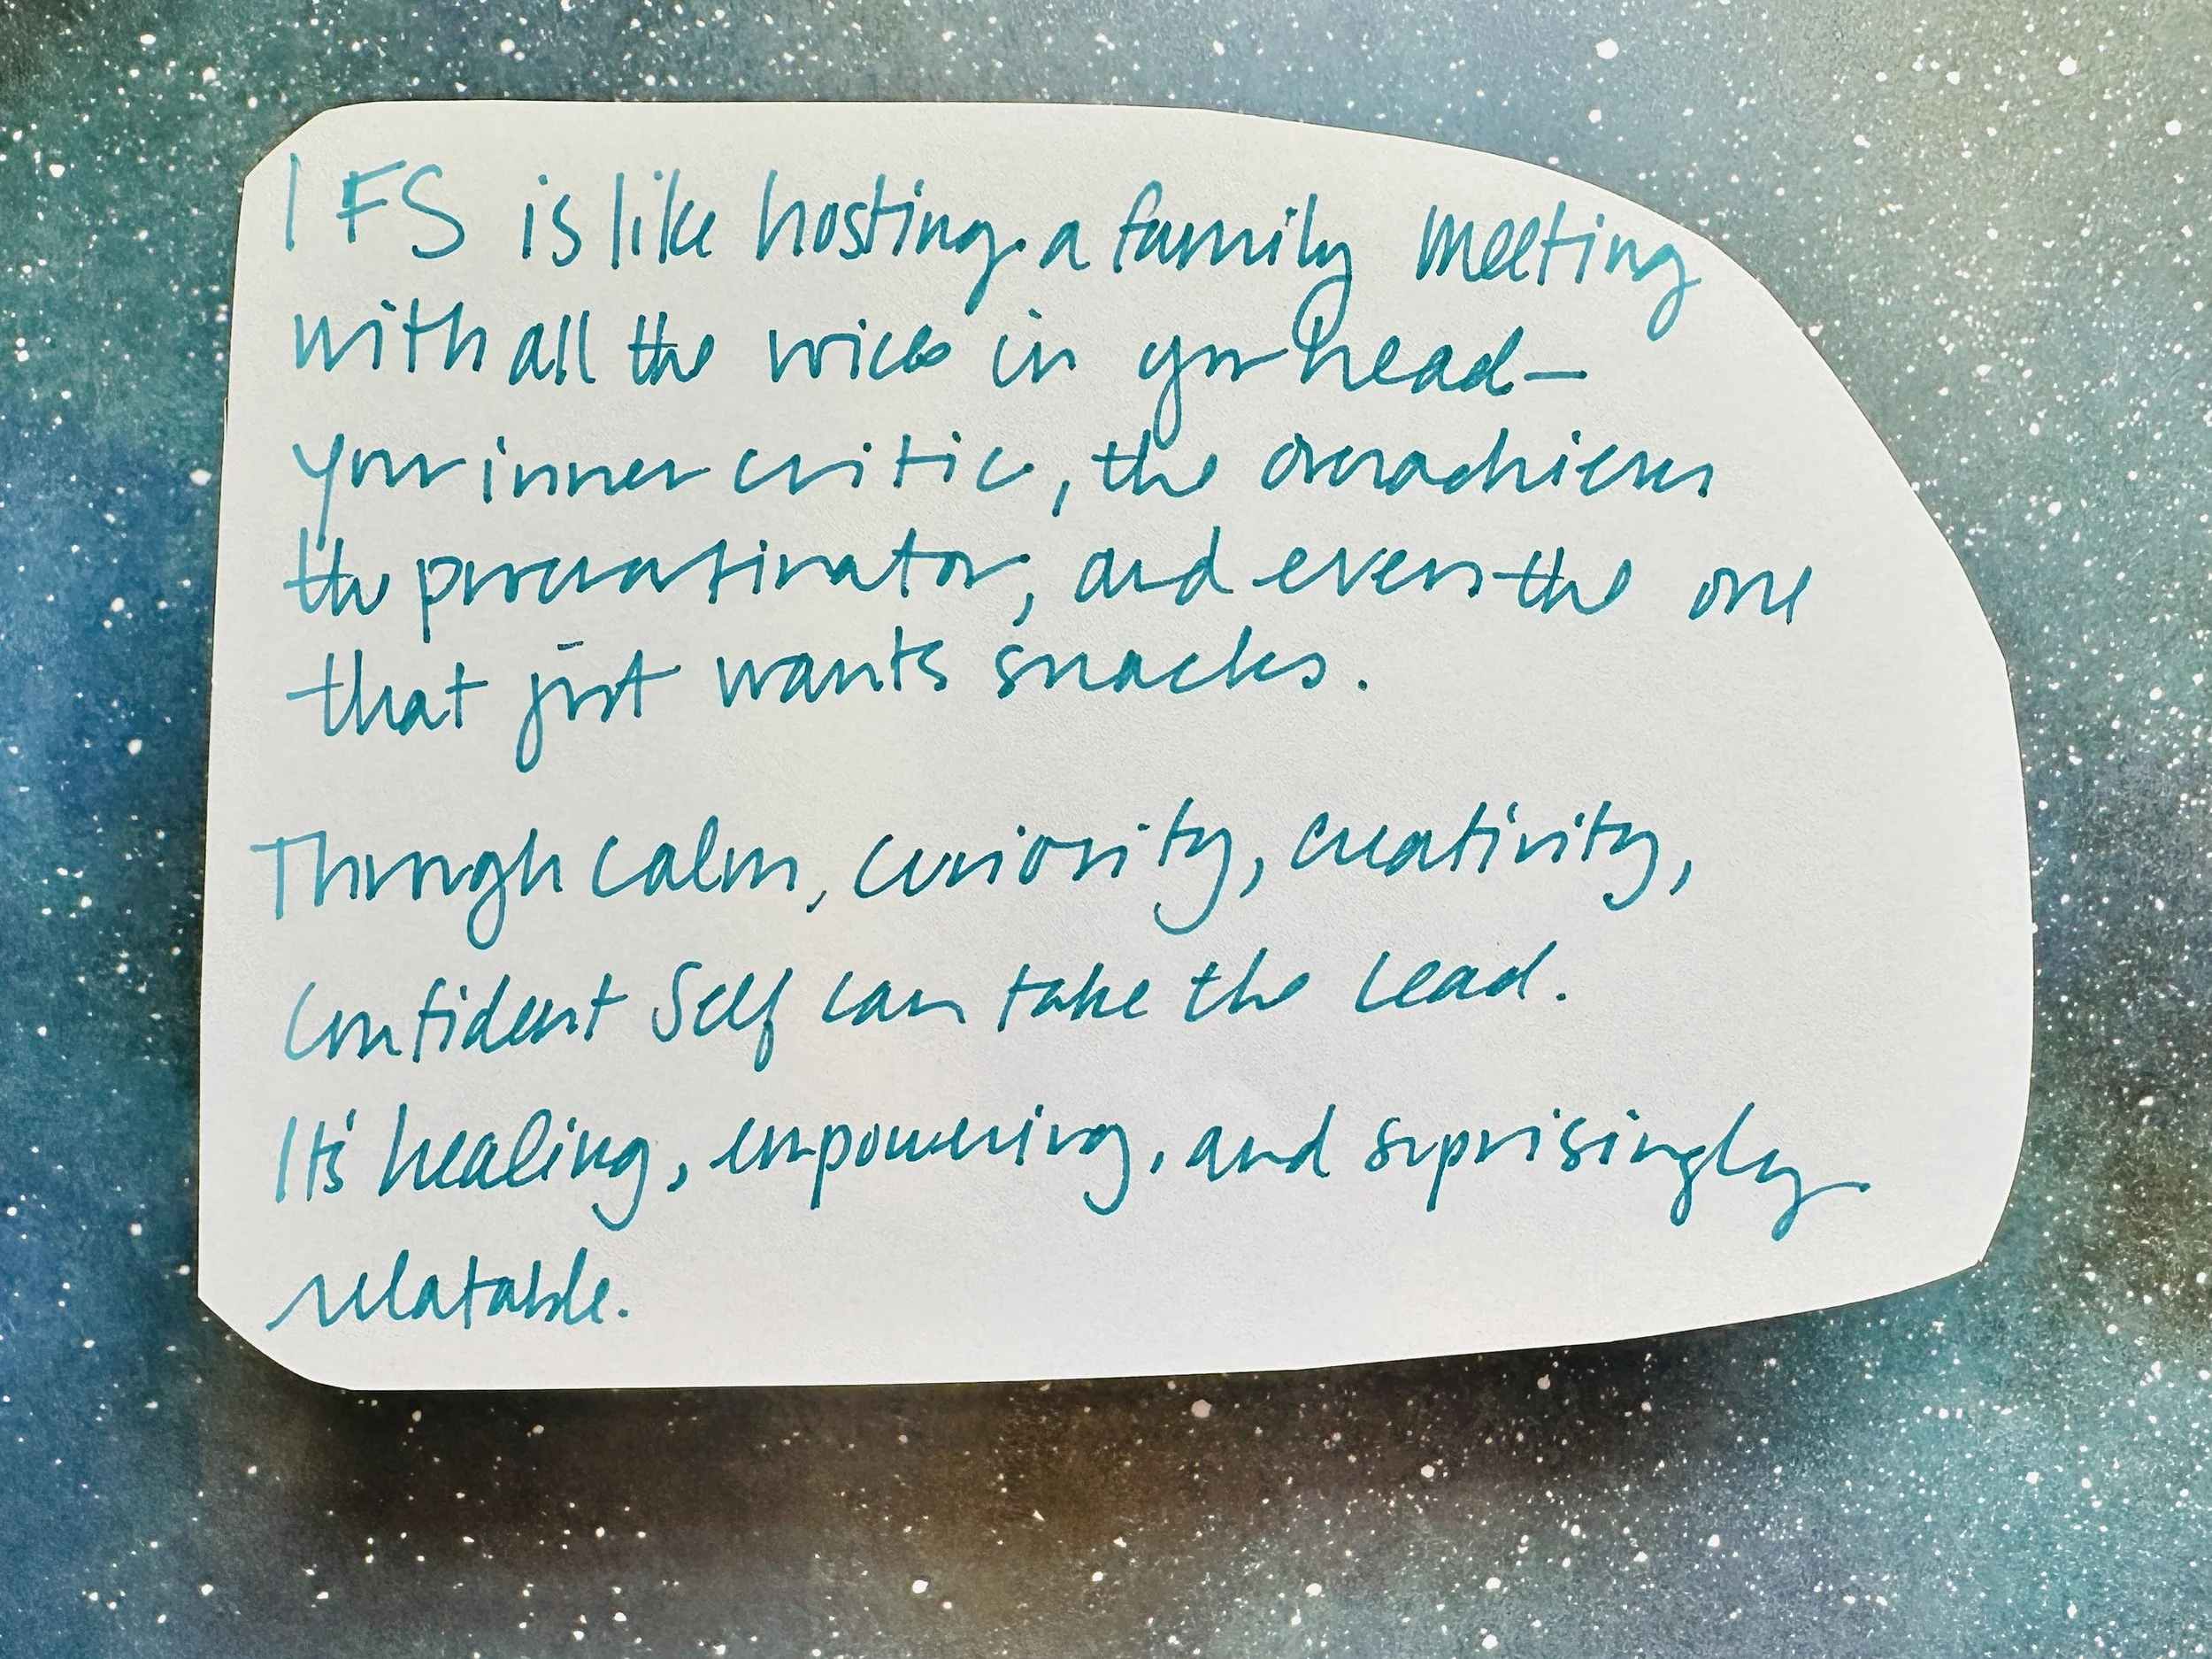 IFS is like hosting a family meeting
with all the voices in your head—
your inner critic, the overachiever
the procrastinator, and even the one
that just wants snacks.
Through calm, curiosity, creativity,
confident Self can take the lead.
It's healing, empowering, and suprisingly
relatable.